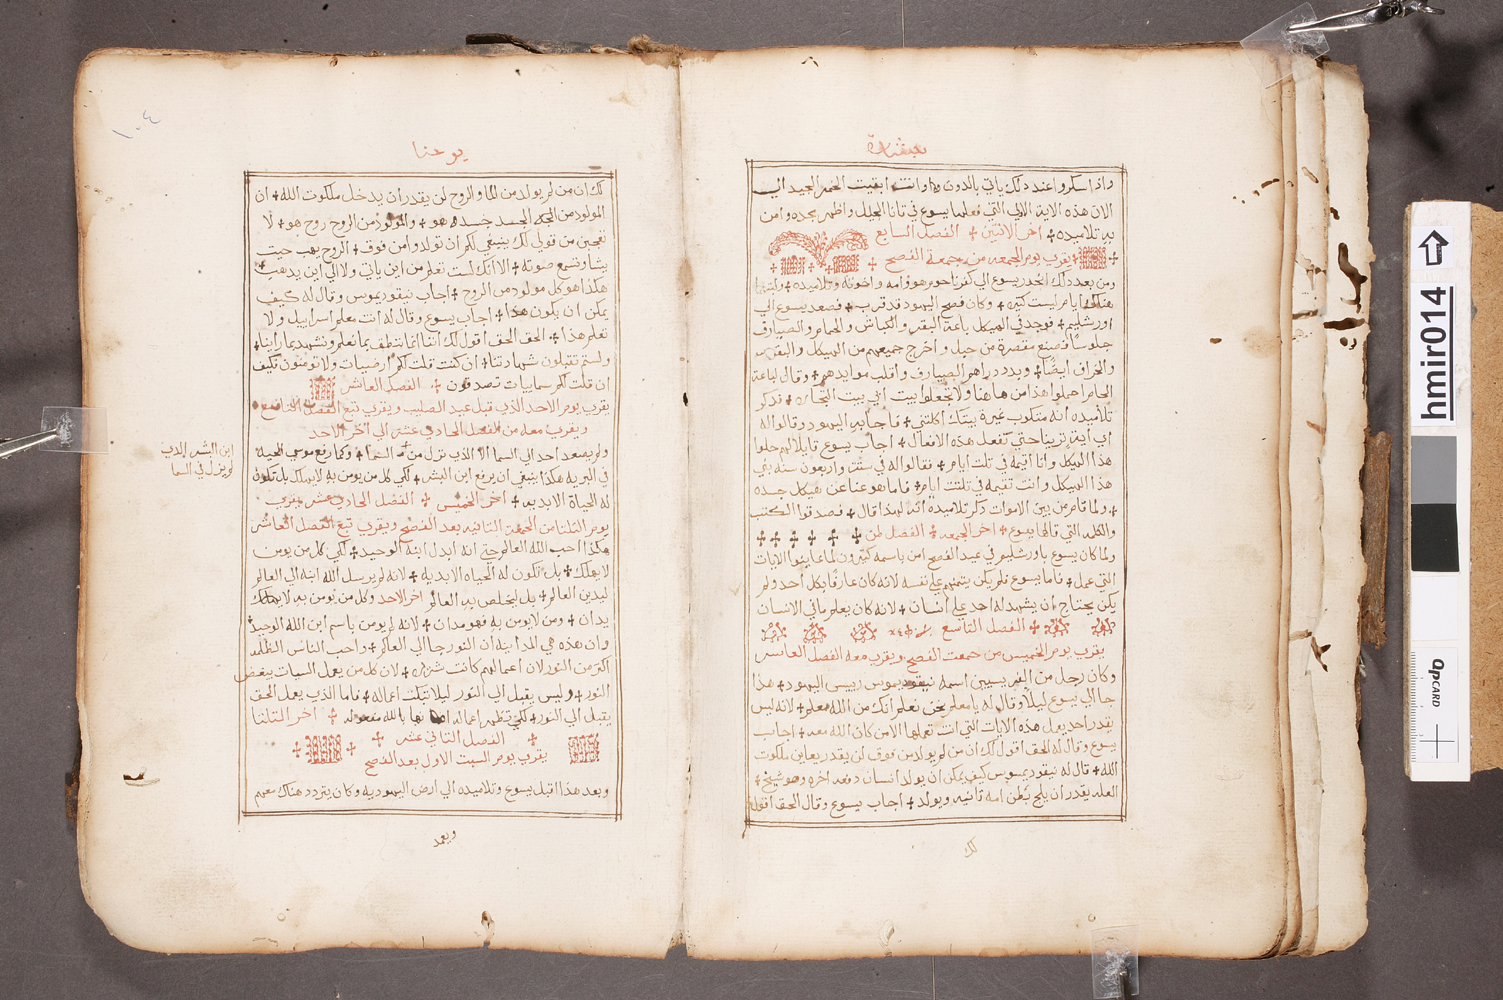 واذا سكروا عند ذلك ياتي بالدون وانت ابقيت الخمر الجيد الي
الان هذه الاية الاولي التي فعلها يسوع في قانا الجليل واظهر مجده وامن
به تلاميذه اخر الاثنين الفصل السابع
يقرب يوم الجمعه من جمعة الفصح
ومن بعد ذلك انحدر يسوع الي كفرناحوم هو وامه واخوته وتلاميذه ولبثوا
هناك اياما ليست كثيره وكان فصح اليهود قد قرب فصعد يسوع الي
اورشليم فوجد في الهيكل باعة البقر والكباش والحمام والصيارف
جلوسا فصنع مقصرة من حبل واخرج جميعهم من الهيكل والبقر
والخراف ايضا وبدد دراهم الصيارف واقلب موايدهم وقال لباعة
الحمام احملوا هذا من هاهنا ولا تجعلوا بيت ابي بيت التجاره فذكر
تلاميذه انه مكتوب غيرة بيتك اكلتني فاجابه اليهود وقالوا له
اي اية ترينا حتي تفعل هذه الافعال اجاب يسوع قايلا لهم حلوا
هذا الهيكل وانا اقيمه في تلت ايام فقالوا له في ستت واربعون سنه بني
هذا الهيكل وانت تقيمه في تلتت ايام فاما هو عنا عن هيكل جسده
ولما قام من بين الاموات ذكر تلاميذه انه لهذا قال فصدقوا الكتب
والكلمه التي قالها يسوع اخر الجمعه الفصل
ولما كان يسوع باورشليم في عيد الفصح امن باسمه كثيرون لما عاينوا الايات
التي عمل فاما يسوع فلم يكن يتمنهم علي نفسه لانه كان عارفا بكل احد ولم
يكن يحتاج ان يشهد له احد علي انسان لانه كان يعلم ما في الانسان
الفصل التاسع
يقرب يوم الخميس من جمعت الفصح ويقرب معه الفصل العاشر
وكان رجل من الفريسيين اسمه نيقوديموس رييس اليهود هذا
جا الي يسوع ليلا وقال له يا معلم نحن نعلم انك من الله معلم لانه ليس
يقدر احد يعمل هذه الايات التي انت تعملها الا من كان الله معه اجاب
يسوع وقال له الحق اقول لك ان من لم يولد من فوق لن يقدر يعاين ملكوت
الله قال له نيقوديموس كيف يمكن ان يولد انسان دفعه اخره وهو شيخ
العله يقدر ان يلج بطن امه تانيه ويولد اجاب يسوع وقال الحق اقول
لك
يوحنا
١٠٤
لك ان من لم يولد من الما والروح لن يقدر ان يدخل ملكوت الله ان
المولود من الجسد جسد هو والمولود من الروح روح هو لا
تعجبن من قولي لك ينبغي لكم ان تولدوا من فوق الروح يهب حيت
يشا وتسمع صوته الا انك لست تعلم من اين ياتي ولا الي اين يذهب
هكذا هو كل مولود من الروح اجاب نيقوديموس وقال له كيف
يمكن ان يكون هذا اجاب يسوع وقال له انت معلم اسراييل ولا
تعلم هذا الحق الحق اقول لك اننا انما ننطق بما نعلم ونشهد بما راينا
ولستم تقبلون شهادتنا ان كنت قلت لكم ارضيات ولا تومنون فكيف
ان قلت لكم سماييات تصدقون الفصل العاشر
يقرب يوم الاحد الذي قبل عيد الصليب ويقرب تبع الفصل التاسع
ويقرب معه من الفصل الحادي عشر الي اخر الاحد
ولم يصعد احد الي السما الا الذي نزل من السما وكما رفع موسي الحيه
في البريه هكذا ينبغي ان يرفع ابن البشر لكي كل من يومن به لا يهلك بل تكون
له الحياة الابديه اخر الخميس الفصل الحادي عشر يقرب
يوم التلتا من الجمعه التانيه بعد الفصح ويقرب تبع الفصل العاشر
هكذا احب الله العالم حتي انه ابدل ابنه الوحيد لكي كل من يومن
لا يهلك بل تكون له الحياه الابديه لانه لم يرسل الله ابنه الي العالم
ليدين العالم بل ليخلص به العالم اخر الاحد وكل من يومن به لا
يدان ومن لا يومن به فهو مدان لانه لم يومن باسم ابن الله الوحيد
وان هذه هي المداينه ان النور جا الي العالم واحب الناس الظلمه
اكثر من النور لان اعمالهم كانت شريره لان كل من يعمل السيات يبغض
النور وليس يقبل الي النور ليلا تبكت اعماله فاما الذي يعمل الحق
يقبل الي النور لكي تظهر اعماله انها بالله معموله اخر التلتا
الفصل التاني عشر
يقرب يوم السبت الاول بعد الفصح
وبعد هذا اقبل يسوع وتلاميذه الي ارض اليهوديه وكان يتردد هناك معهم
ويعمد
ابن البشر الذي
لم يزل في السما
hmir014
qpCARD